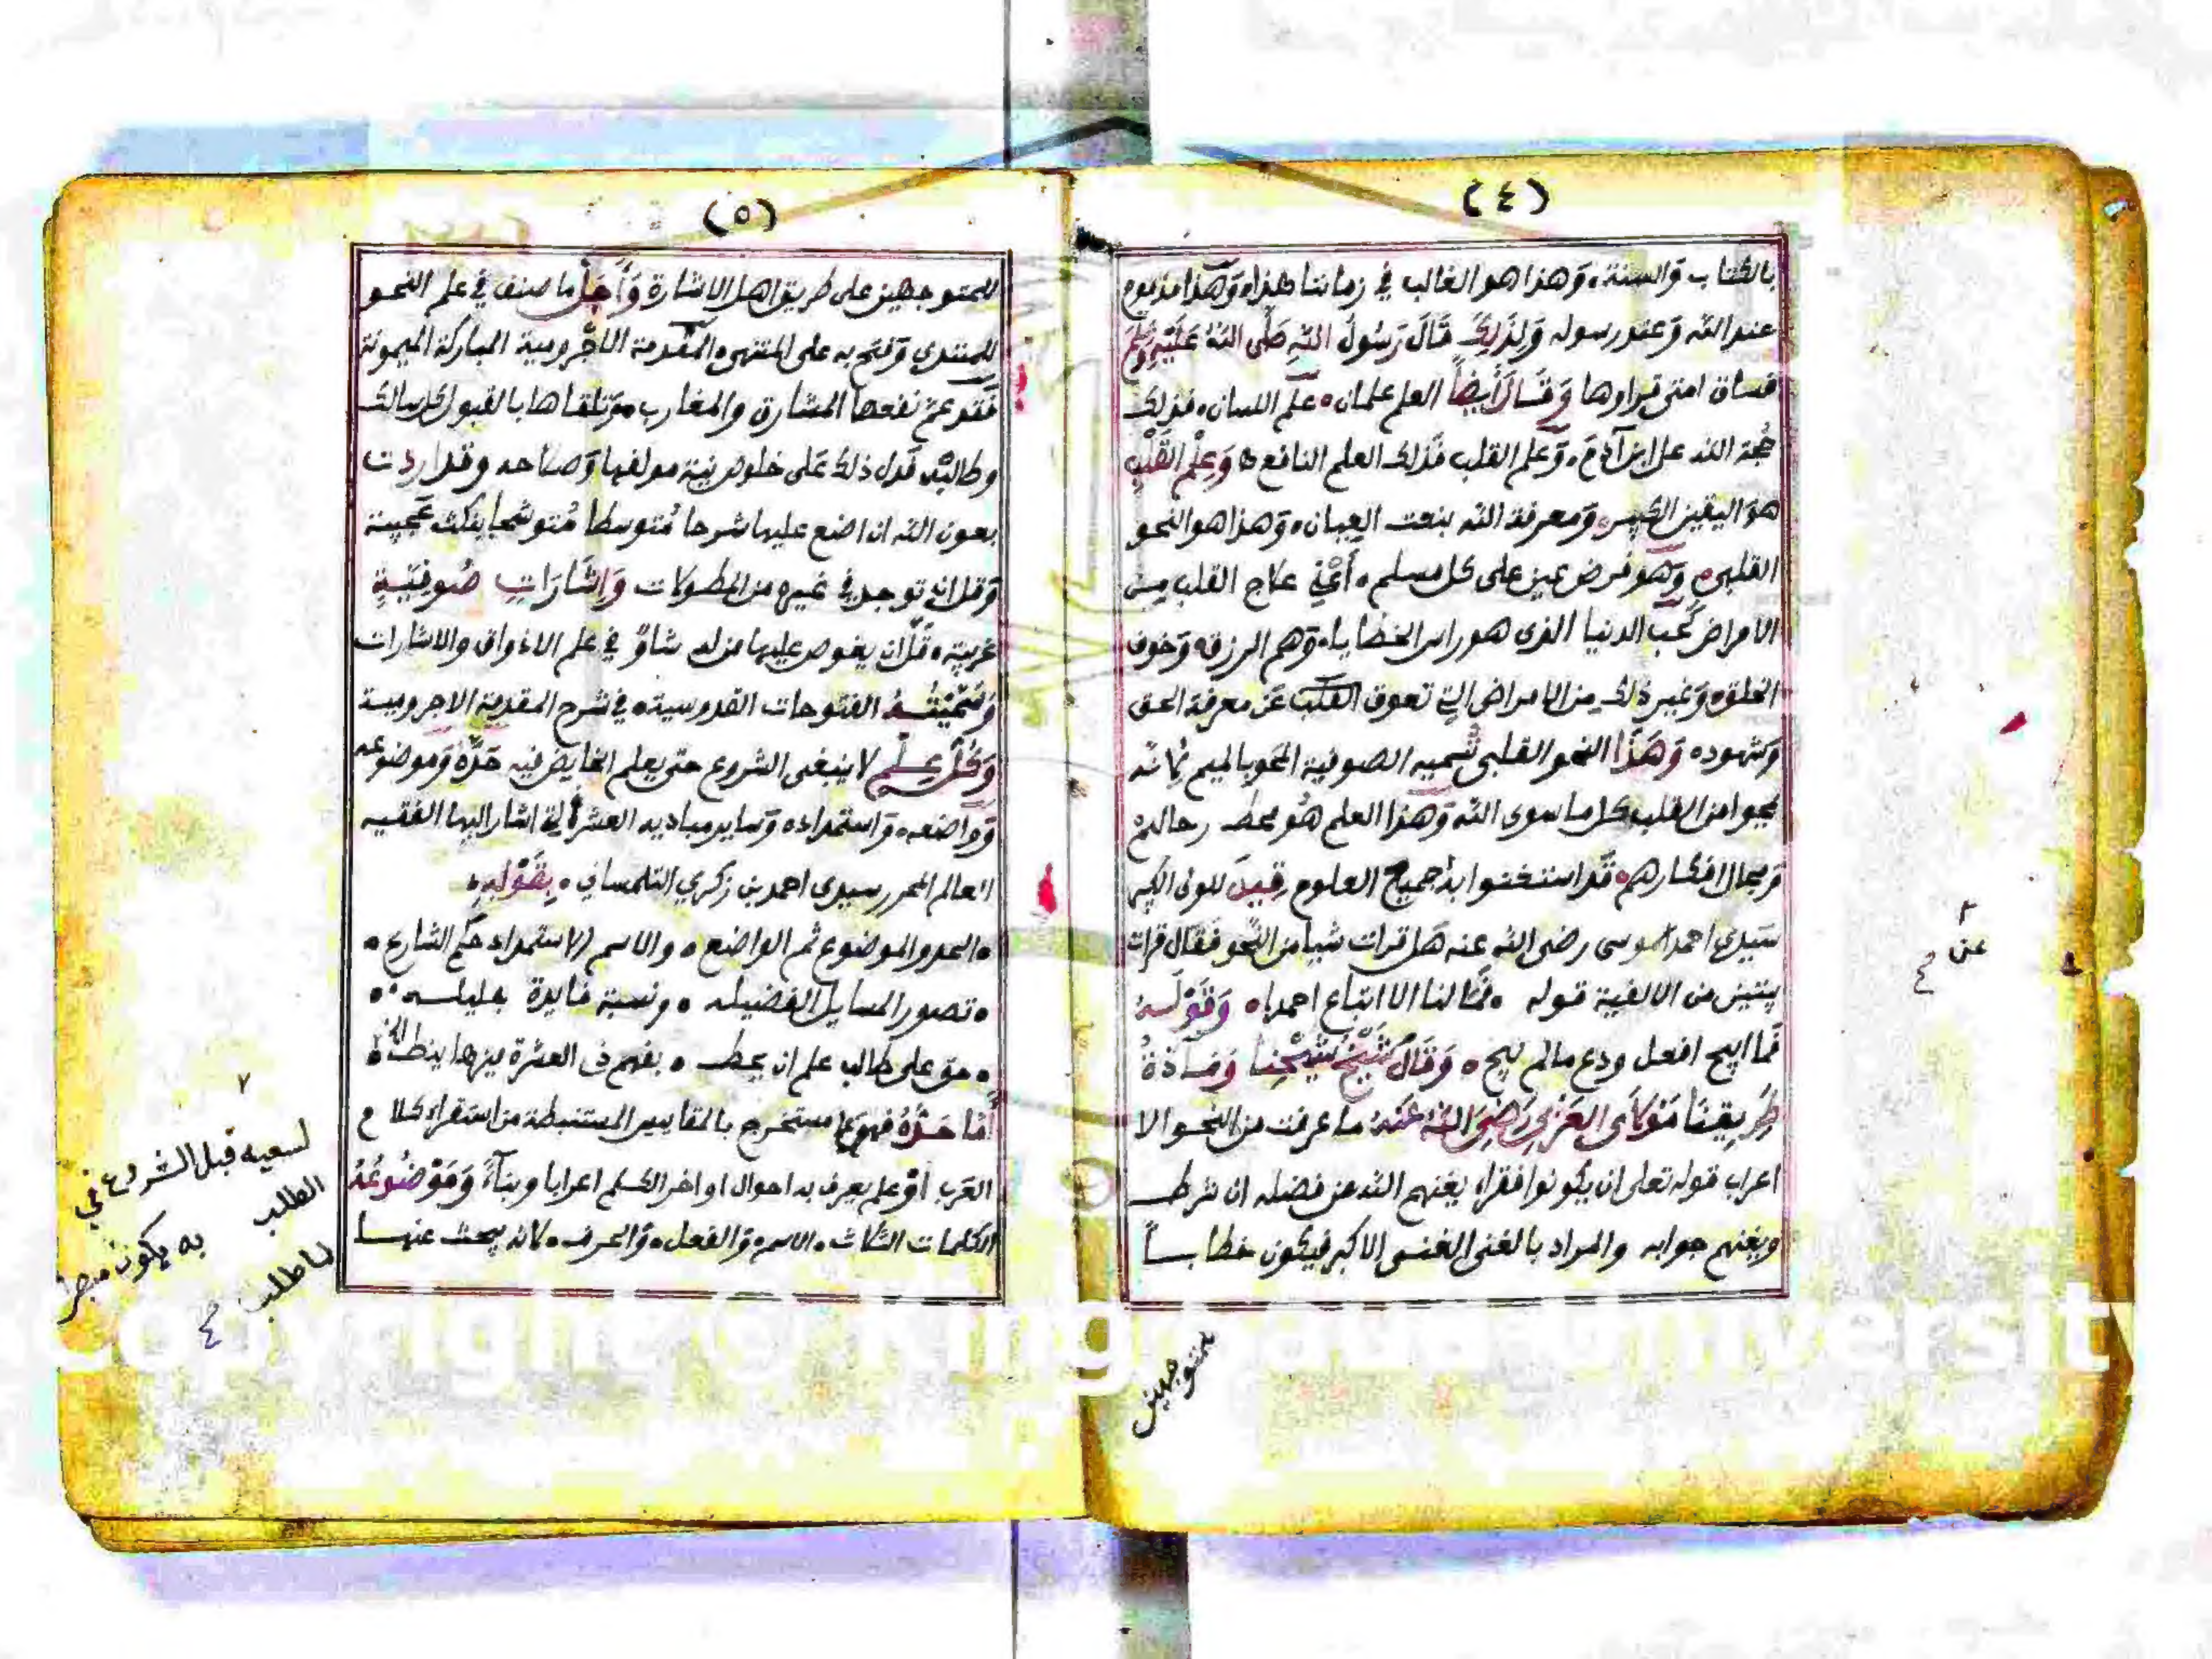 (٤)
بالكتاب والسنة، وهذا هو الغالب في زماننا هذا، وهذا مذموم
عند الله وعند رسوله ولذلك قال رسول الله صلى الله عليه وسلم
فساق امتي قراوها وقال أيضاً العلم علمان، علم اللسان، فذلك
حجة الله على ابن آدم، وعلم القلب فذلك العلم النافع، وعلم القلب
هو اليقين الكبير، ومعرفة الله بنعت العيان، وهذا هو النحو
القلبي، وهو فرض عين على كل مسلم، أعني علاج القلب من
الامراض كحب الدنيا الذي هو راس الخطايا، وهم الرزق، وخوف
الخلق، وغير ذلك من الامراض التي تعوق القلب عن معرفة الحق
وشهوده وهذا النحو القلبي تسميه الصوفية المحو بالميم لانه
يمحوا من القلب كل ما سوى الله وهذا العلم هو محط رحالهم
ومجال افكارهم، قد استغنوا به جميع العلوم قيل للولي الكبير
سيدي احمد الموسى رضي الله عنه هل قرات شيا من النحو فقال قرات
بيتين من الالفية قوله ، فما لنا الا اتباع احمدا، وقوله
فما ابيح افعل ودع ما لم يبح ، وقال شيخ شيخنا ومادة
طريقنا مولاي العربي رضي الله عنه ما عرفت من النحو الا
اعراب قوله تعلى ان يكونوا فقراء يغنهم الله من فضله ان شرط
ويغنهم جوابه والمراد بالغنى الغنى الاكبر فيكون خطابا
للمتوجهين
٢
عن
(٥)
للمتوجهين على طريق اهل الاشارة وأجل ما صنف في علم النحو
للمبتدي وفتح به على المنتهي، المقدمة الاجرومية المباركة الميمونة
فقد عم نفعها المشارق والمغارب، وتلقاها بالقبول كل سالك
وطالب، فدل ذلك على خلوص نية مولفها وصلاحه وقد اردت
بعون الله ان اضع عليها شرحا متوسطا متوشحا بنكت عجيبة
وقل ان توجد في غيره من المطولات وإشارات صوفية
غريبة، قل ان يغوص عليها من له شاو في علم الاذواق والاشارات
وسميته الفتوحات القدوسية، في شرح المقدمة الاجرومية
وكل علم لا ينبغي الشروع حتى يعلم الخايض فيه حده وموضوعه
وواضعه، واستمداده وساير مباديه العشرة التي اشار اليها الفقيه
العالم المحرر سيدي احمد بن زكري التلمساني ، بقوله،
، الحد والموضوع ثم الواضع ، والاسم الاستمداد حكم الشارع ،
، تصور المسايل الفضيله ، ونسبة فايدة جليله ،
، حق على طالب علم ان يحط ، بفهم ذي العشرة ميزها ينط
أما حده فهو علم مستخرج بالمقاييس المستنبطة من استقراء كلام
العرب أو علم يعرف به احوال اواخر الكلم اعرابا وبناءً وموضوعه
الكلمات الثلاث، الاسم، والفعل، والحرف، لانه يبحث عنها
٧
لسعيه قبل الشروع في
الطلب به يكون مبصرا
لما طلب